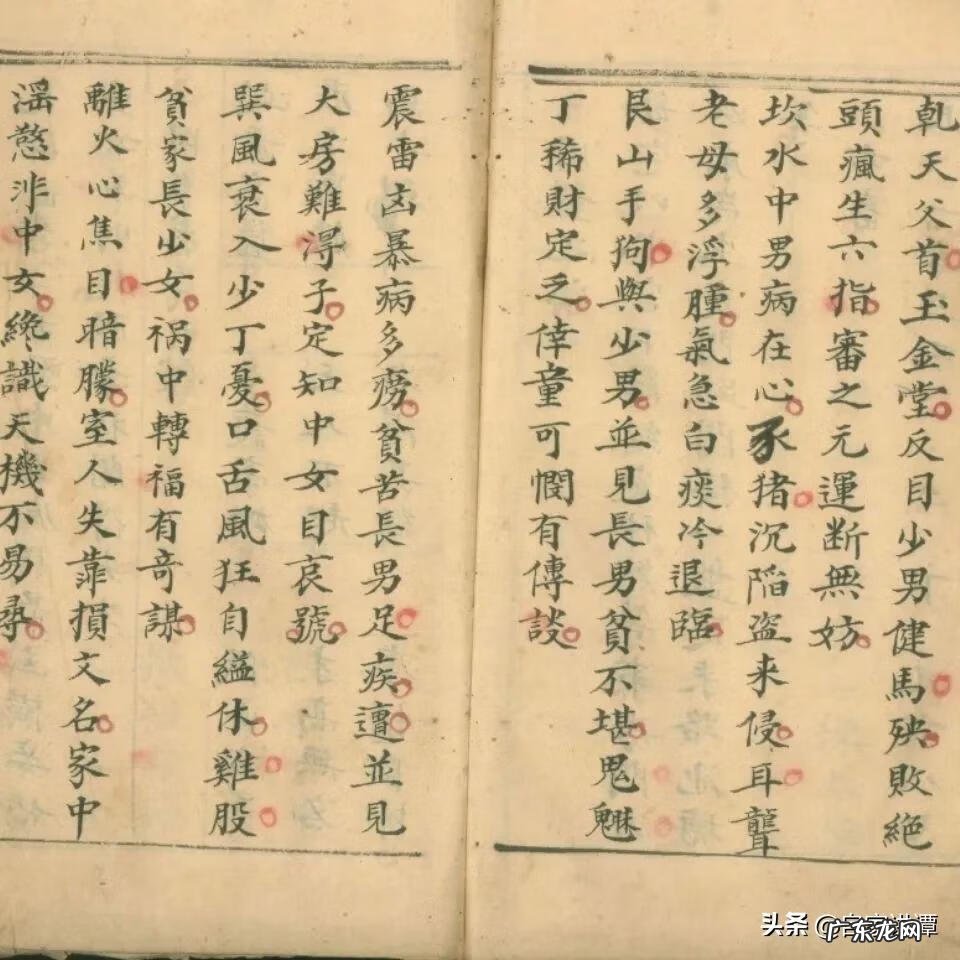 乹天父首玉金堂反目少男健馬殃敗絕
頭瘋生六指審之元運断無妨
坎水中男病在心豕猪沉陷盗来侵耳聾
老母多浮腫氣急白痰冷退臨
艮山手狗與少男並見長男貧不堪鬼魅
丁稀財定乏倖童可憫有傳談
震雷凶暴病多癆貧苦長男足疾遭並見
大房難淂子定知中女目哀號
巽風衰入少丁憂口舌風狂自縊休雞股
貧家長少女祸中轉福有竒謀
離火心焦目暗朦室人失靠損文名家中
滛慾非中女纔識天機不易尋
头条
广东龙网